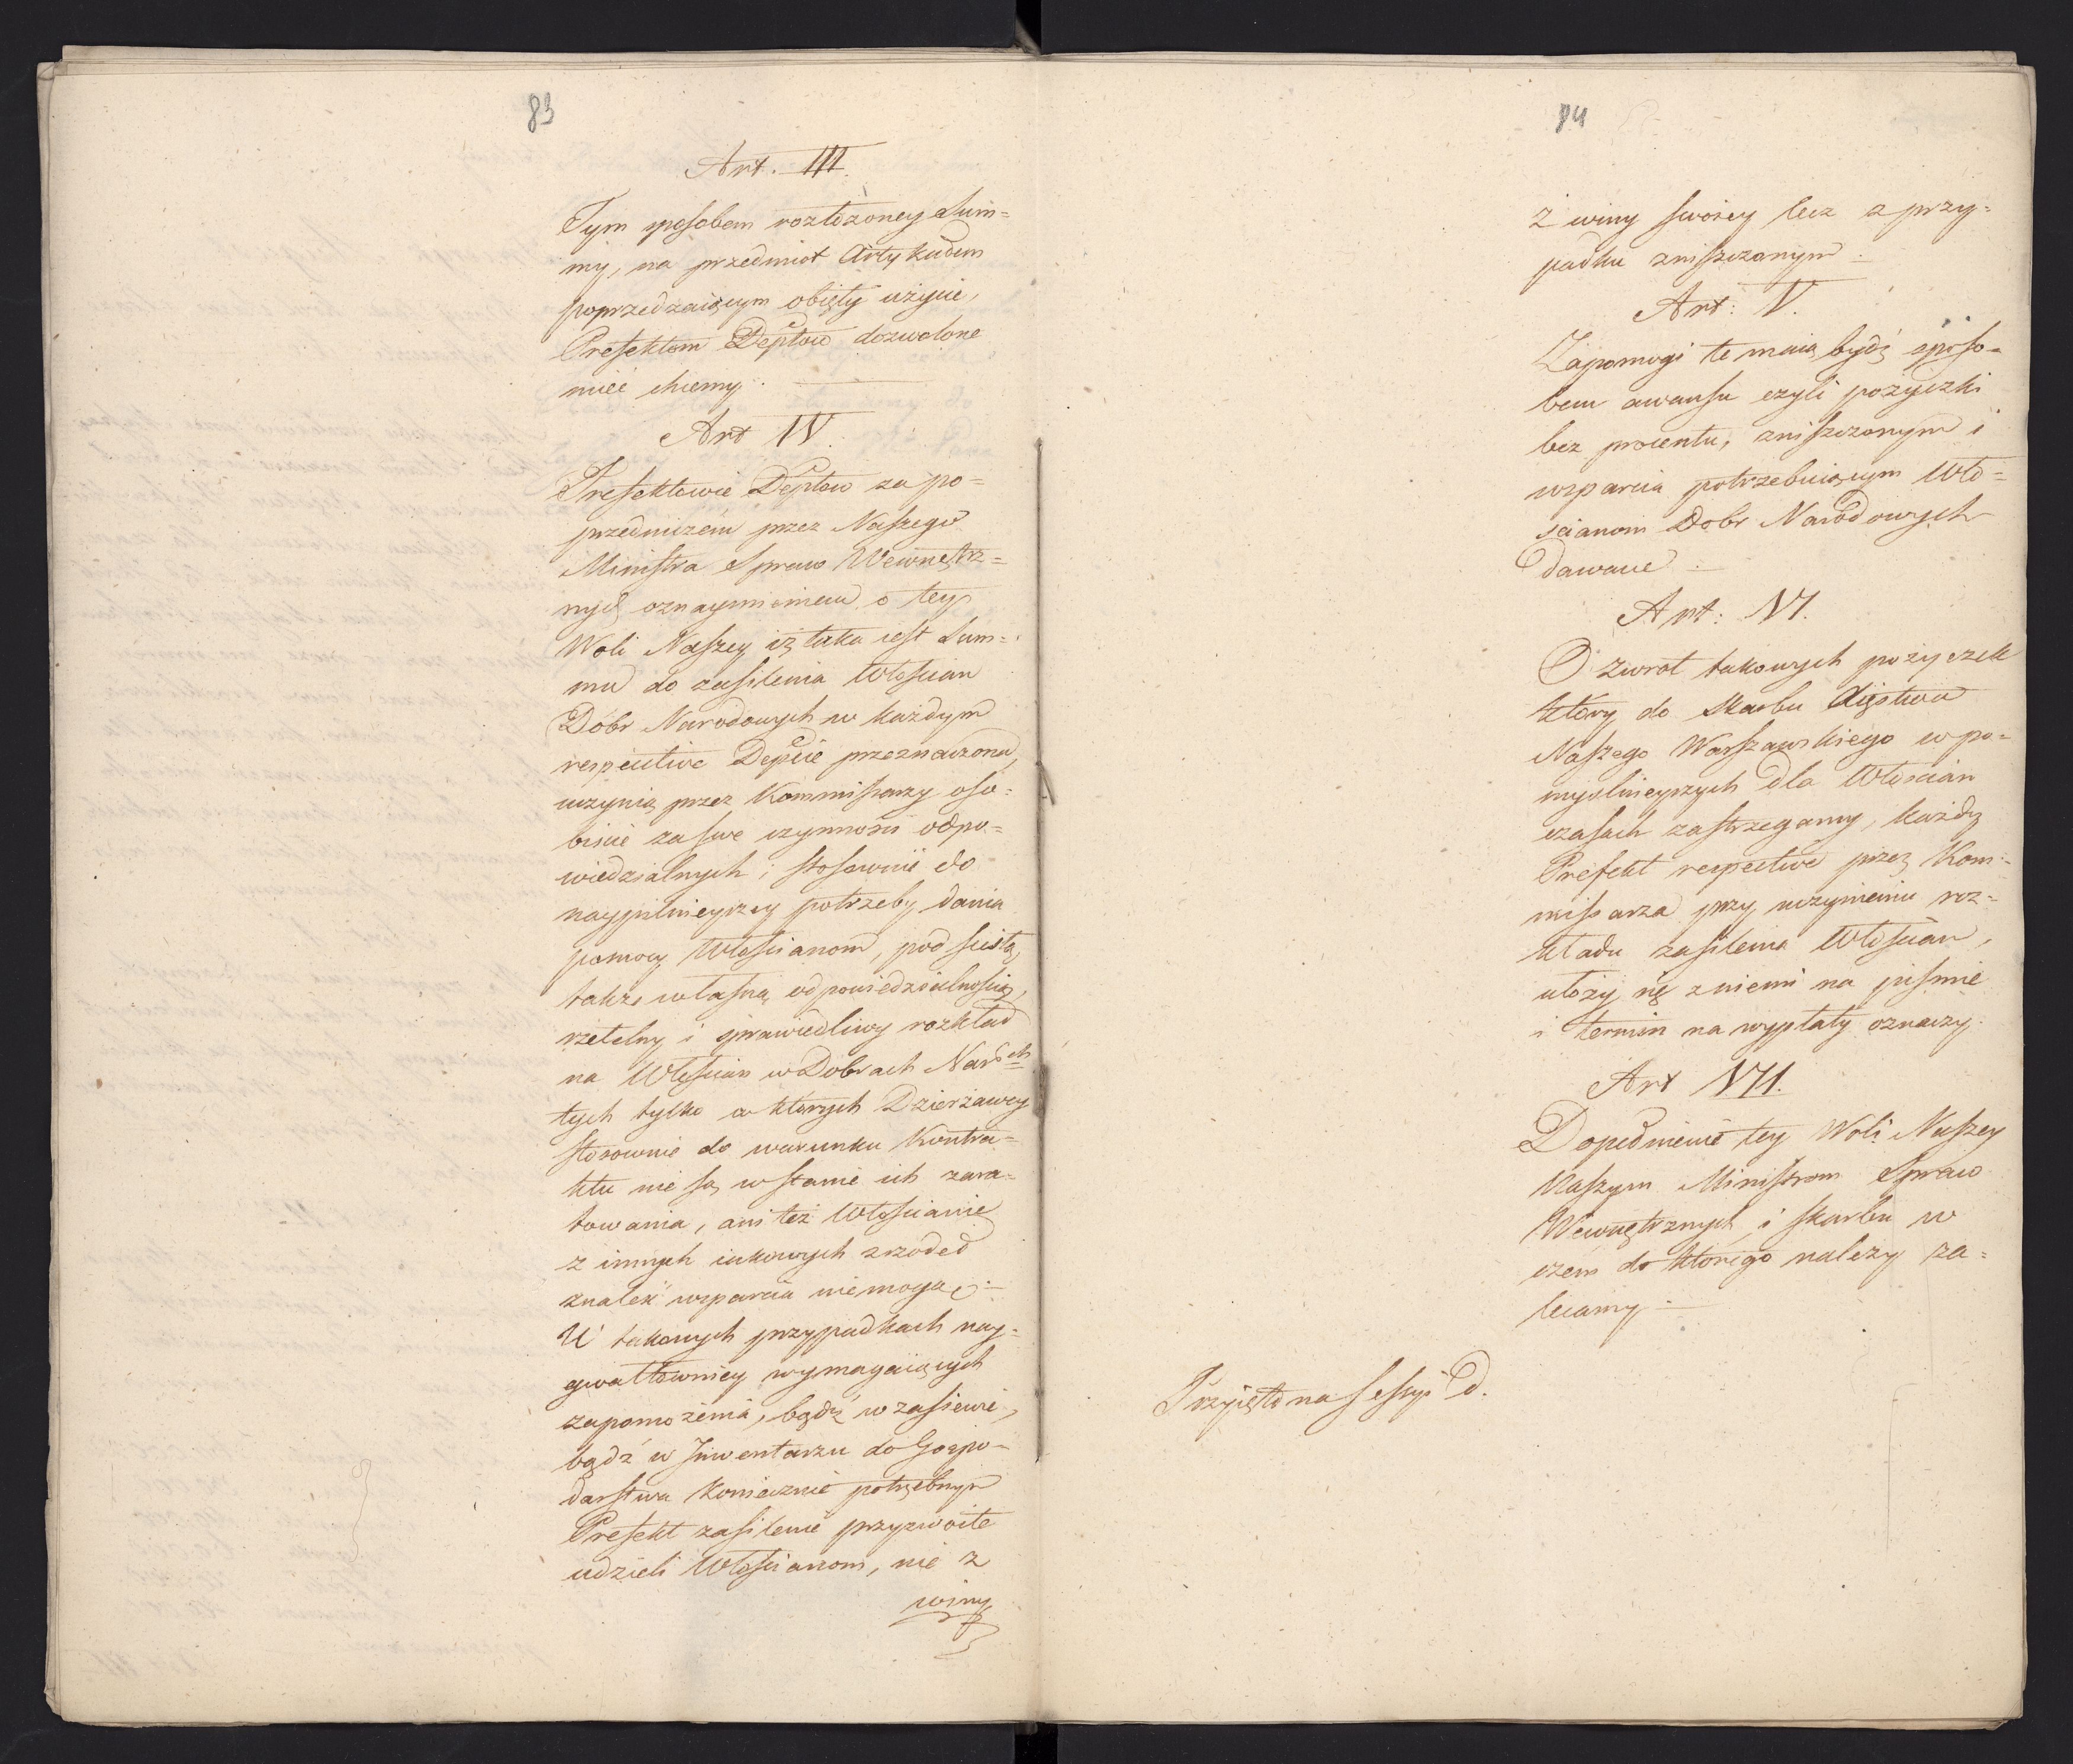 83
Art. III.
Tym sposobem rozłożoney Sum=
my, na przedmiot Artykułem
poprzedzaiącym obięty użycie,
Prefektom Deptow dozwolone
mieć chcemy.
Art IV.
Prefektowie Deptow za po=
przedniczém przez Naszego
Ministra Spraw Wewnętrz=
nych oznaymieniem o tey
Woli Naszey iż taka iest Sum=
ma do zasilenia Włościan
Dóbr Narodowych w każdym
respective Depcie przeznaczona,
uczynią przez Kommissarzy oso=
biście za swe czynności odpo=
wiedzialnych i stosownie do
naypilnieyszey potrzeby dania
pomocy Włościanom, pod scisłą
także własną odpowiedzialnością,
rzetelny i sprawiedliwy rozkład
na Włościan w Dobrach Narodch
tych tylko w ktorych Dzierżawcy
stosownie do warunku Kontra=
ktu nie są w stanie ich zara=
towania, ani też Włościanie
z innych iakowych zrzodeł
znaleść wsparcia nie mogą.
W takowych przypadkach nay=
gwałtowniey wymagaiących
zapomożenia, bądź w zasiewie,
bądź w Inwentarzu do Gospo=
darstwa koniecznie potrzebnym
Prefekt zasilenie przyzwoite
udzieli Włościanom, nie z
winy
84
z winy swoiey lecz z przy=
padku zniszczonym.
Art: V.
Zapomogi te maią bydź sposo=
bem awansu czyli pożyczki
bez procentu, zniszczonym i
wsparcia potrzebuiącym Wło=
scianom Dobr Narodowych
dawane
Art: VI.
O zwrot takowych pożyczek
ktory do Skarbu Xięstwa
Naszego Warszawskiego w po=
myslnieyszych dla Włościan
czasach zastrzegamy, każdy
Prefekt respective przez Kom=
missarza przy uczynieniu roz=
kładu zasilenia Włościan,
ułoży się z niemi na pismie
i termin na wypłaty oznaczy.
Art VII.
Dopełnienie tey Woli Naszey
Naszym Ministrom Spraw
Wewnętrznych i Skarbu w
czém do ktorego należy za=
lecamy
Przyięto na Sessyi d.